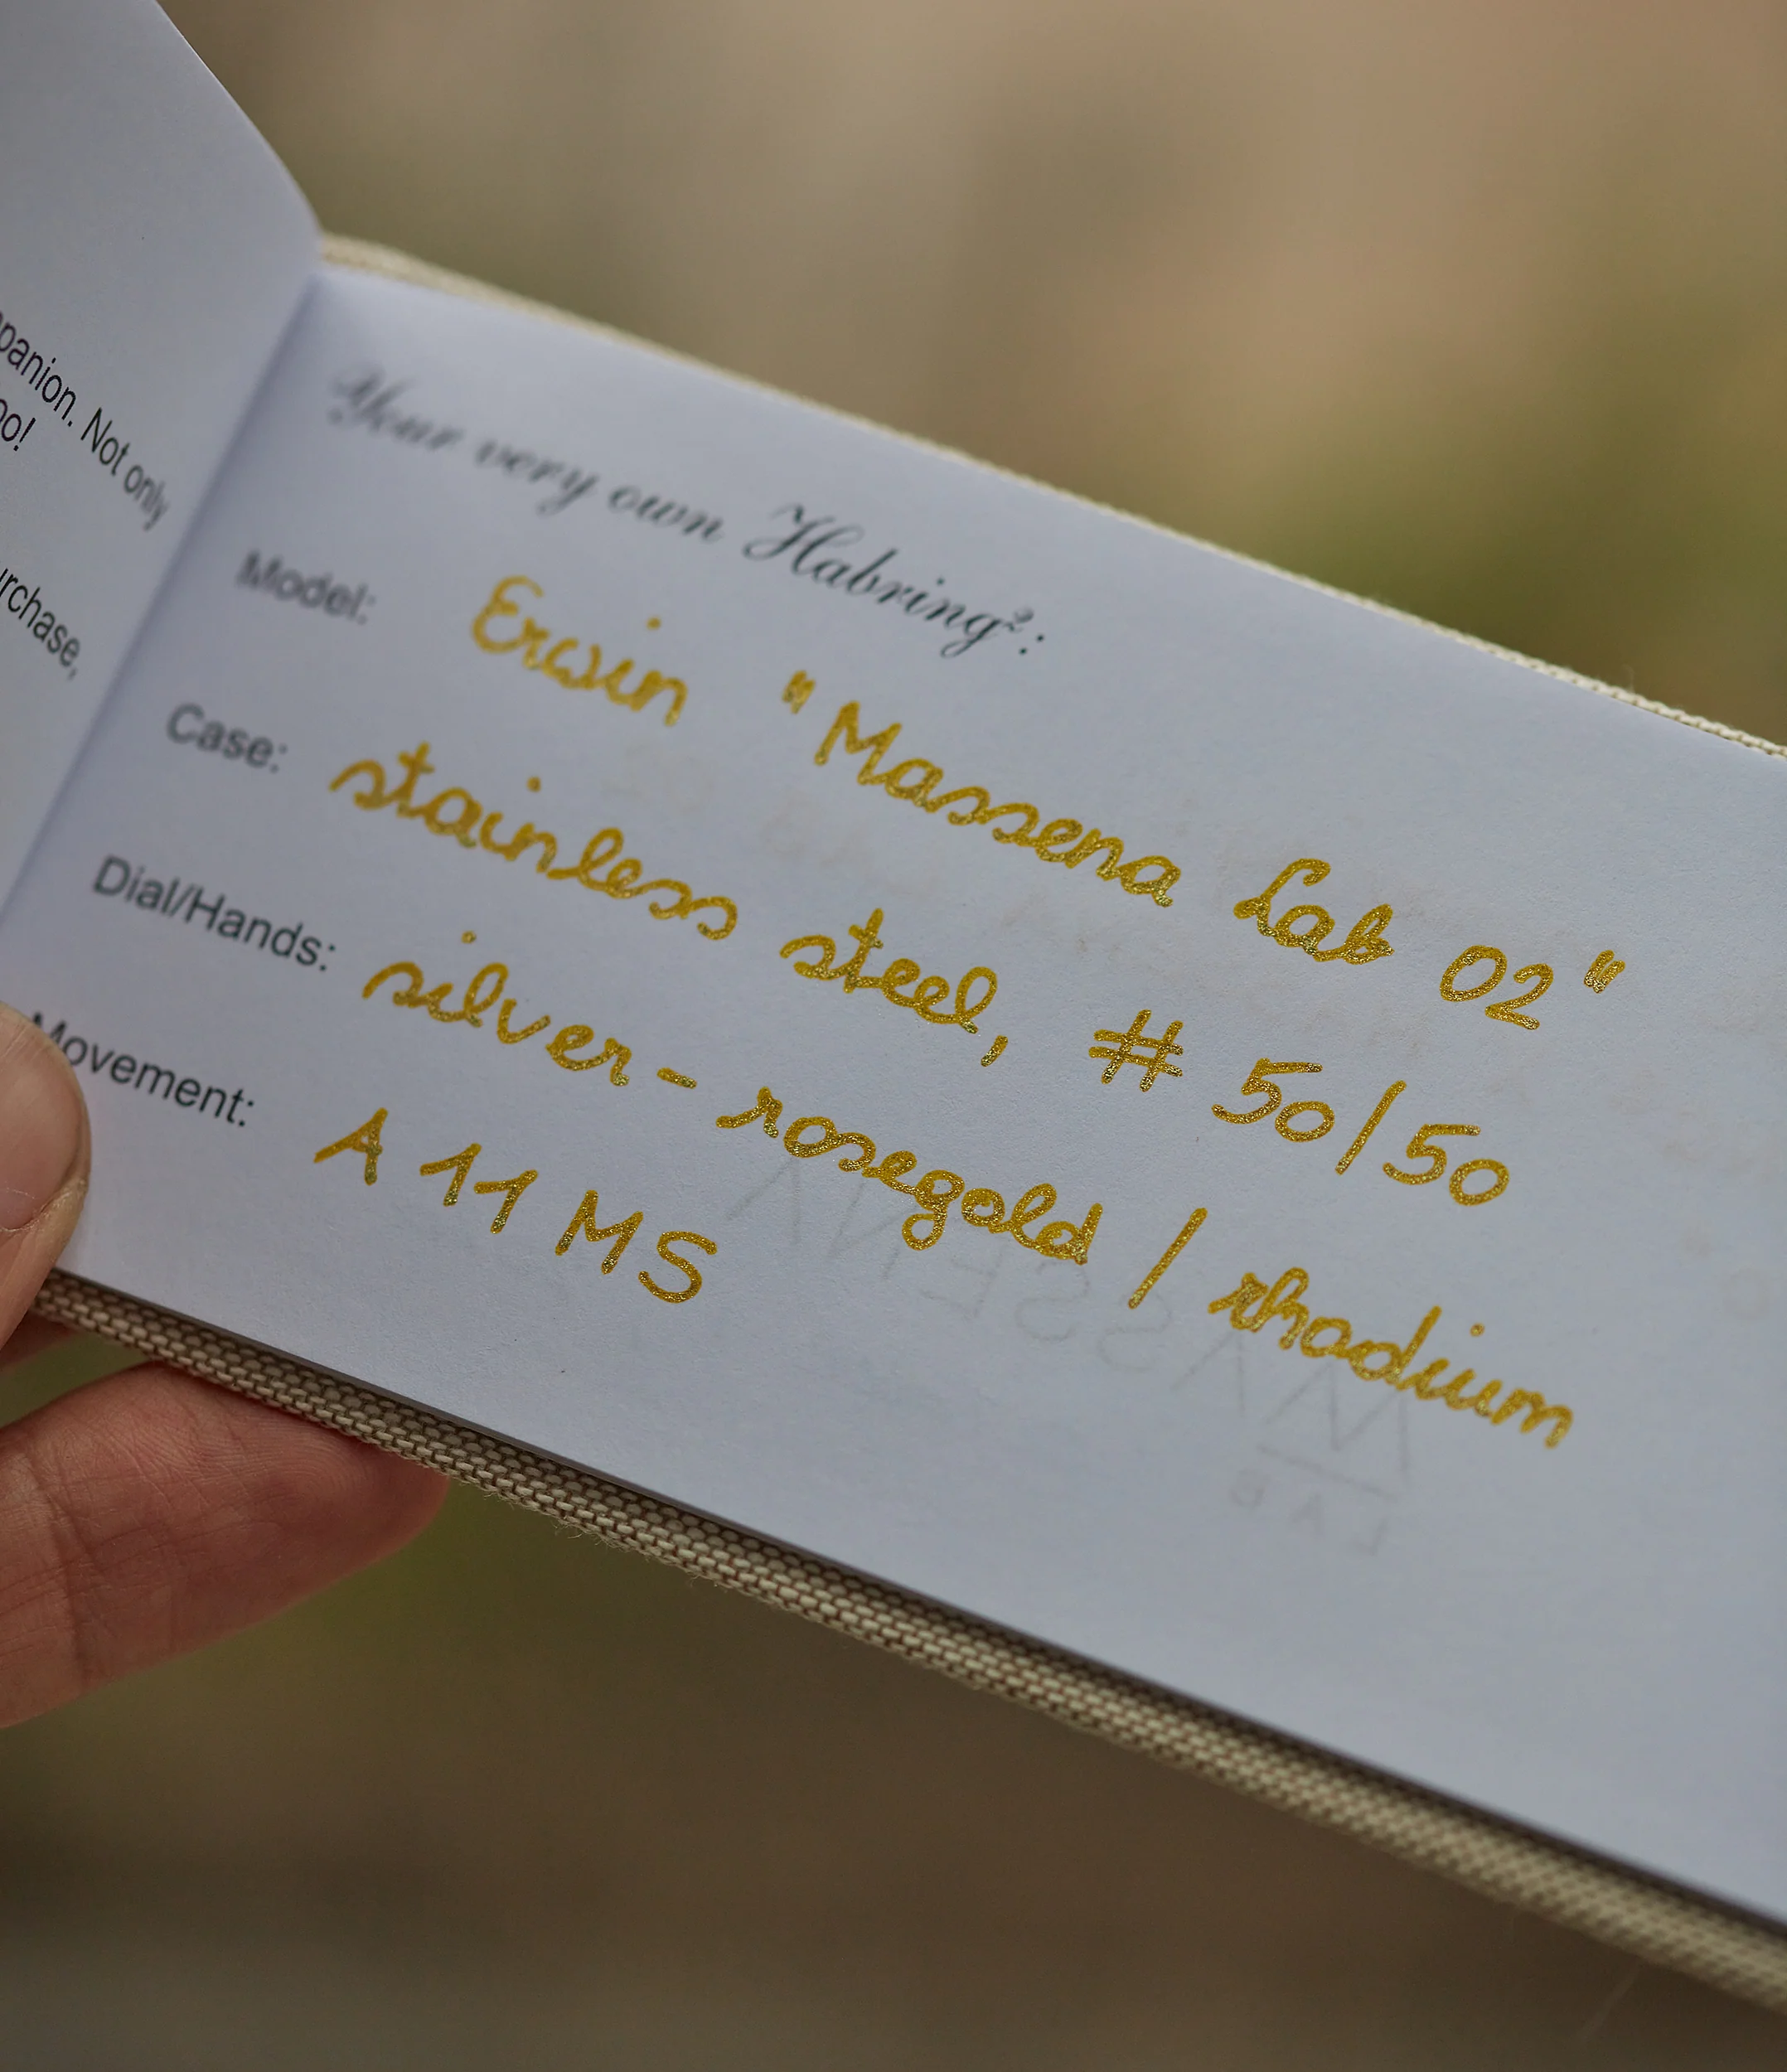 panion. Not only
oo!
urchase,
Your very own Habring²:
Model: Erwin "Massena Lab 02"
Case: stainless steel, # 50/50
Dial/Hands: silver-rosegold / rhodium
Movement: A 11 MS
MASSENA
LAB